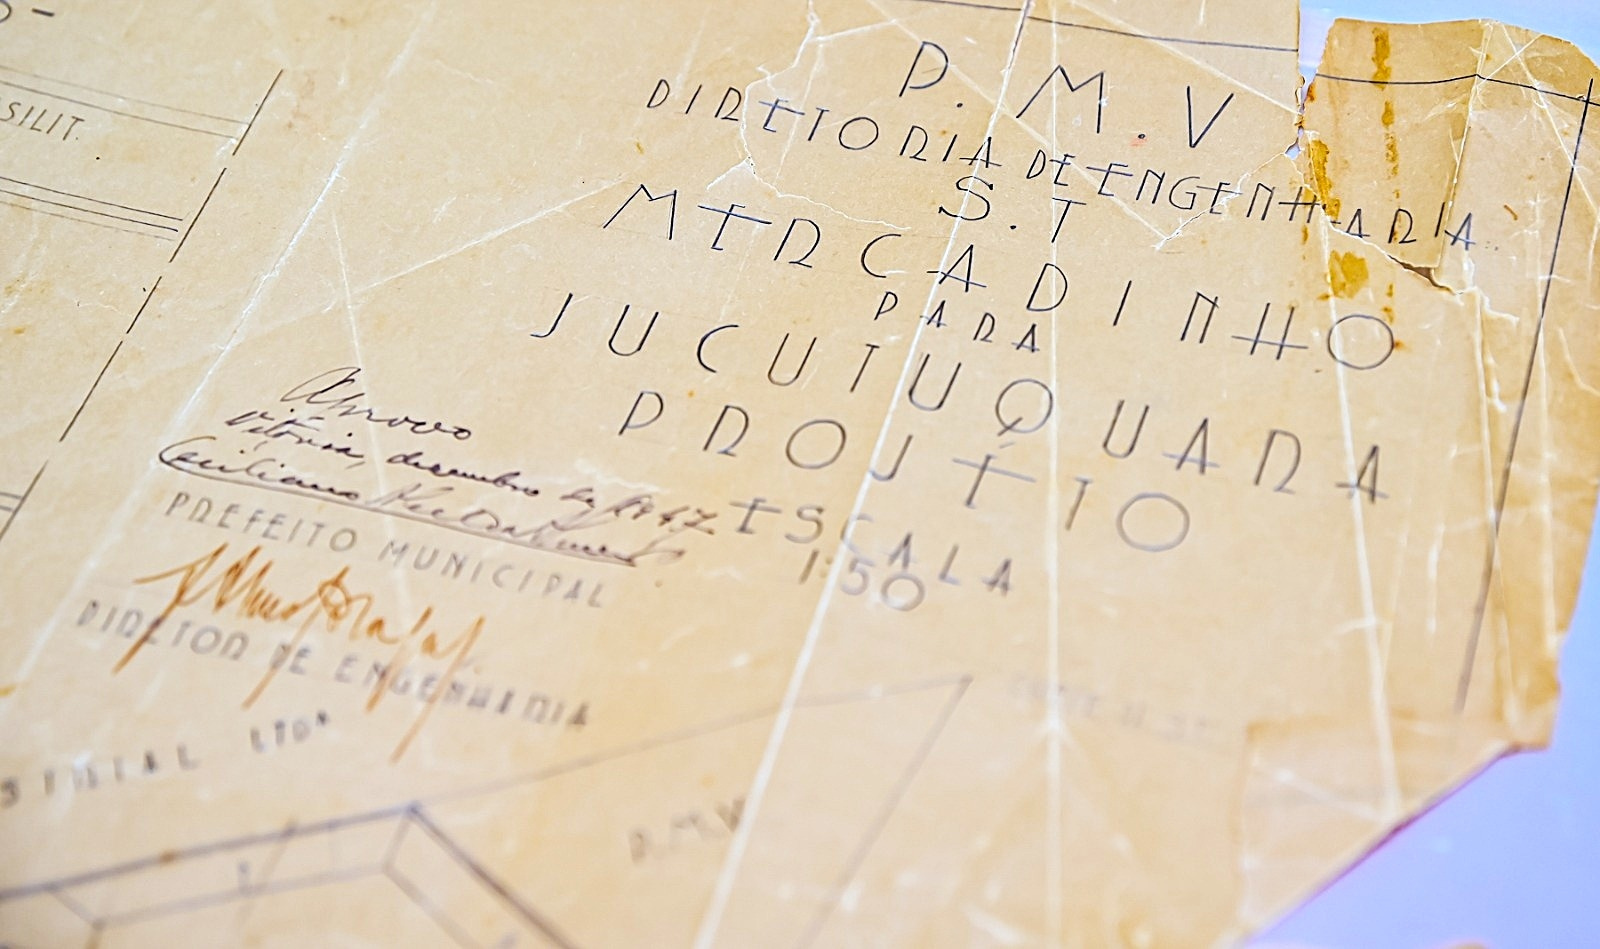 SILIT.
P. M. V
DIRETORIA DE ENGENHARIA
S. T
MERCADINHO
PARA
JUCUTUQUARA
PROJETO
ESCALA
1:50
Aprovo
Vitória, dezembro de 1947
PREFEITO MUNICIPAL
DIRETOR DE ENGENHARIA
STRIAL LTDA
P.M.V.